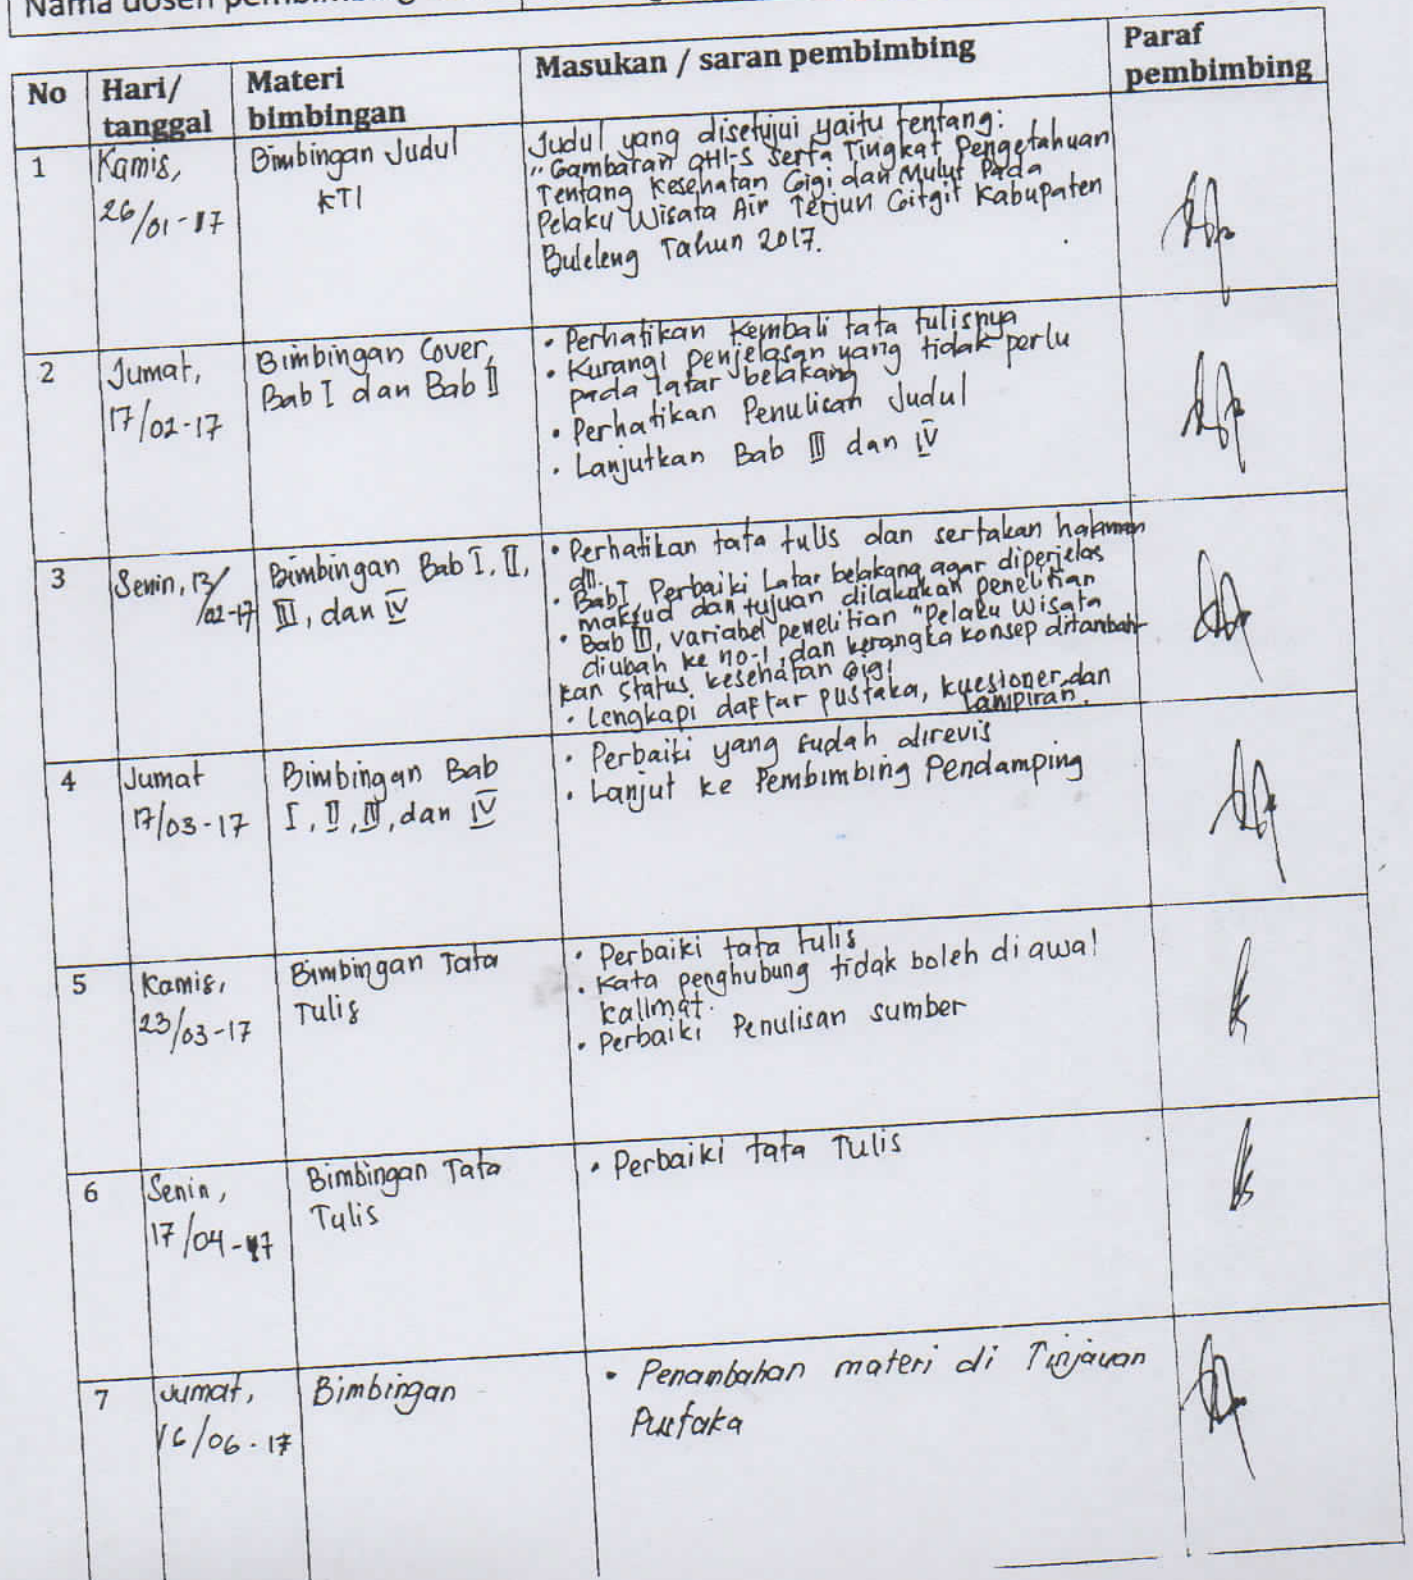 Nama dosen pembimbing
No
Hari/
tanggal
Materi
bimbingan
Masukan / saran pembimbing
Paraf
pembimbing
1
Kamis,
26/01-17
Bimbingan Judul
KTI
Judul yang disetujui yaitu tentang:
"Gambaran OHI-S serta Tingkat Pengetahuan
Tentang Kesehatan Gigi dan Mulut Pada
Pelaku Wisata Air Terjun Gitgit Kabupaten
Buleleng Tahun 2017.
2
Jumat,
17/02-17
Bimbingan Cover,
Bab I dan Bab II
• Perhatikan kembali tata tulisnya
• Kurangi penjelasan yang tidak perlu
pada latar belakang
• Perhatikan Penulisan Judul
• Lanjutkan Bab III dan IV
3
Senin, 13/
02-17
Bimbingan Bab I, II,
III, dan IV
• Perhatikan tata tulis dan sertakan halaman
dll.
• Bab I Perbaiki Latar belakang agar diperjelas
maksud dan tujuan dilakukan penelitian
• Bab III, variabel penelitian "Pelaku Wisata
diubah ke no-1, dan kerangka konsep ditambah-
kan status kesehatan gigi
• Lengkapi daftar pustaka, kuesioner, dan
Lampiran.
4
Jumat
17/03-17
Bimbingan Bab
I, II, III, dan IV
• Perbaiki yang sudah direvis
• Lanjut ke Pembimbing Pendamping
5
Kamis,
23/03-17
Bimbingan Tata
Tulis
• Perbaiki tata tulis
• Kata penghubung tidak boleh di awal
kalimat.
• Perbaiki Penulisan sumber
6
Senin,
17/04-17
Bimbingan Tata
Tulis
• Perbaiki tata Tulis
7
Jumat,
16/06-17
Bimbingan
• Penambahan materi di Tinjauan
Pustaka